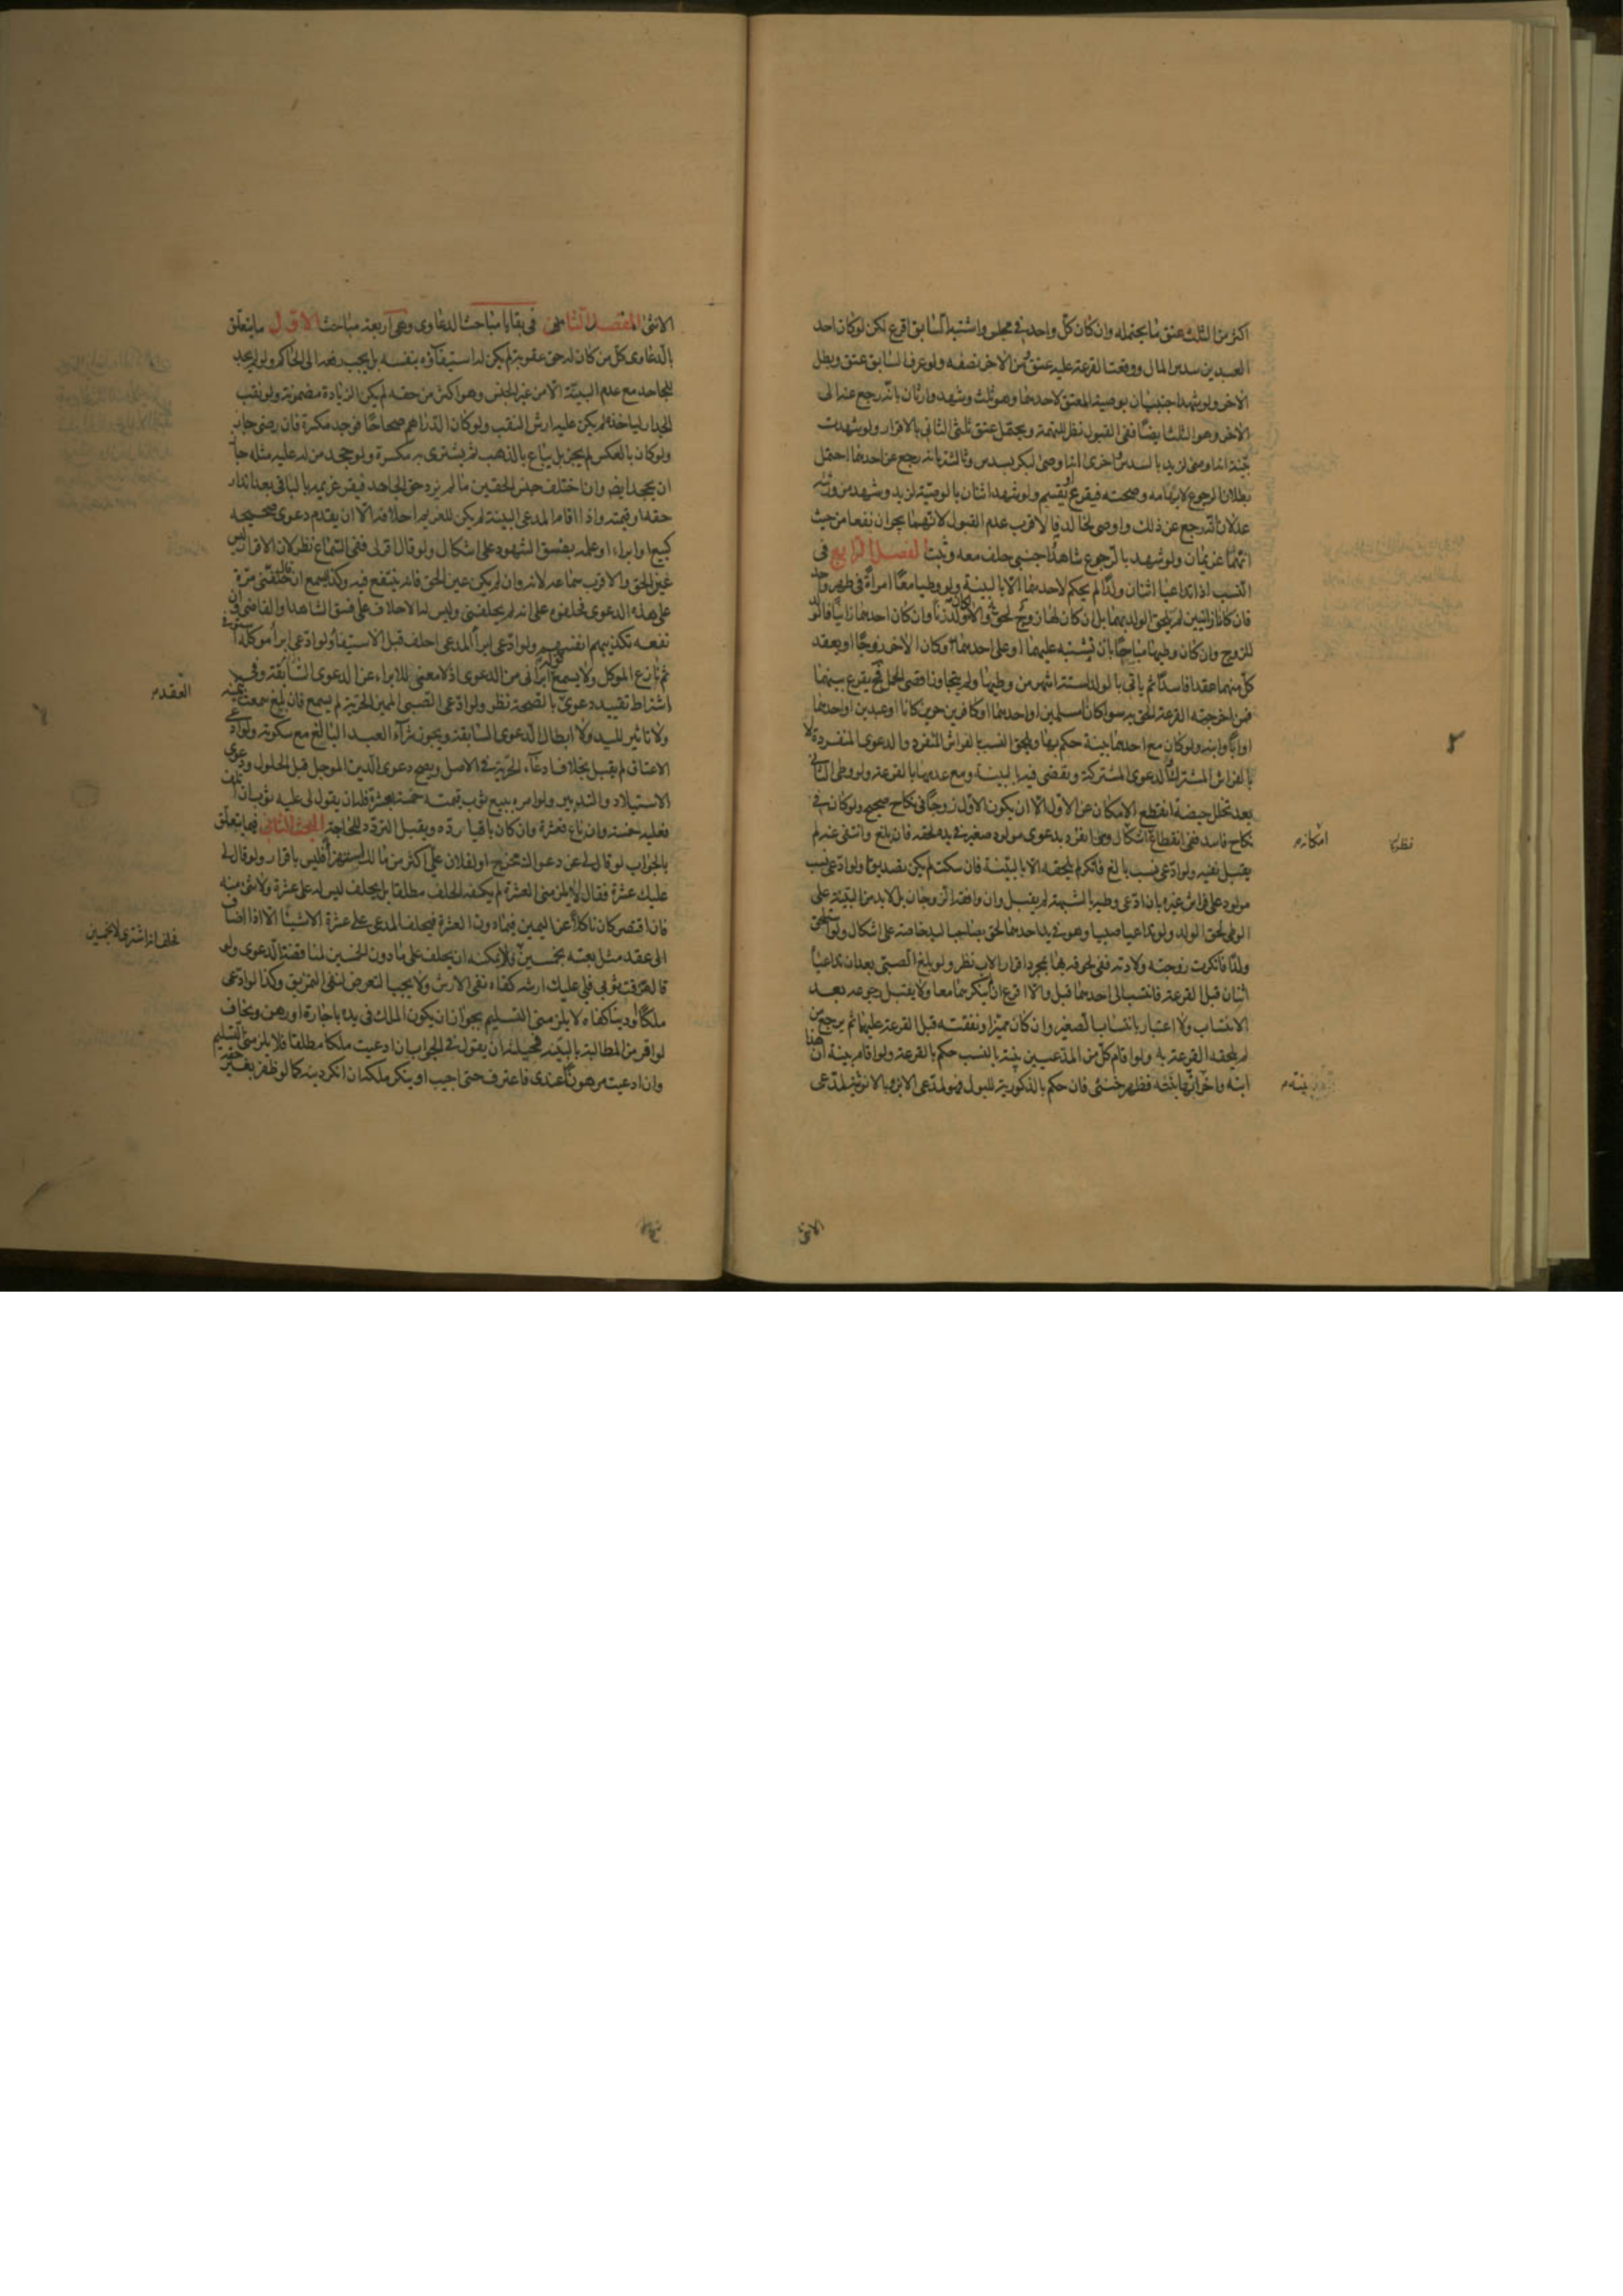 اكثر من الثلث عتق ما يحتمله وان كان كل واحد في مجلس واشتبه السابق اقرع لكن لو كان احد
العبدين سدس المال ووقعت القرعة عليه عتق من الاخر نصفه ولو عرف السابق عتق وبطل
الاخر ولو شهد اجنبيان بوصية العتق لاحدهما وهو ثلث وشهد وارثان بانه رجع عنه الى
الاخر وهو الثلث ايضا ففي القبول نظر للتهمة ويحتمل عتق ثلثي الثاني بالاقرار ولو شهدت
بينة انه اوصى لزيد بالسدس واخرى انه اوصى لبكر بسدس وثالثة بانه رجع عن احدهما احتمل
بطلان الرجوع لابهامه وصحته فيقرع او يقسم ولو شهد اثنان بالوصية لزيد وشهد من ورثته
عدلان انه رجع عن ذلك واوصى لخالد فالاقرب عدم القبول لانهما يجران نفعا من حيث
انهما غريمان ولو شهد بالرجوع شاهد اجنبي حلف معه وثبت الفصل الرابع في
النسب اذا تداعيا اثنان ولدا لم يحكم لاحدهما الا بالبينة ولو وطيا معا امراة في طهر واحد
فان كانا زانيين لم يلحق الولد بهما بل ان كان لها زوج لحق به والا كان ولد زنا وان كان احدهما زانيا فالولد
للزوج وان كان وطيهما مباحا بان تشتبه عليهما او على احدهما وكان الاخر زوجا او يعقد
كل منهما عقدا فاسدا ثم ياتي بالولد لستة اشهر من وطيهما ولم يتجاوز اقصى الحمل فح يقرع بينهما
فمن اخرجته القرعة الحق به سواء كانا مسلمين او احدهما او كافرين حرين كانا او عبدين او احدهما
او ابا وابنه ولو كان مع احدهما بينة حكم بها ويلحق النسب بالفراش المنفرد والدعوى المنفردة لا
بالفراش المشترك والدعوى المشتركة ويقضى فيه بالبينة ومع عدمها بالقرعة ولو وطى الثاني
بعد تخلل حيضة انقطع الامكان عن الاول الا ان يكون الاول زوجا في نكاح صحيح ولو كان في
نكاح فاسد ففي انقطاع اشكال ومن انفرد بدعوى مولود صغير في يده لحقه فان بلغ وانتفى عنه لم
امكانه
نظر
يقبل نفيه ولو ادعى نسب بالغ فانكر لم يلحقه الا بالبينة فان سكت لم يكن تصديقا ولو ادعى نسب
مولود على فراش غيره بان ادعى وطيه بالشبهة لم يقبل وان وافقه الزوجان بل لا بد من البينة على
الوطى لحق الولد ولو تداعيا صبيا وهو في يد احدهما لحق بصاحب اليد خاصة على اشكال ولو استلحق
ولدا فانكرت زوجته ولادته ففي لحوقه بها بمجرد اقرار الاب نظر ولو بلغ الصبي بعد ان تداعياه
اثنان قبل القرعة فانتسب الى احدهما قبل والا اقرع ان انكرهما معا ولا يقبل رجوعه بعد
الانتساب ولا اعتبار بانتساب الصغير وان كان مميزا ونفقته قبل القرعة عليهما ثم يرجع من
لم يلحقه القرعة به ولو اقام كل من المدعيين بينة بالنسب حكم بالقرعة ولو اقام بينة ان هذا
ابنه واخر انها بنته فظهر خنثى فان حكم بالذكورية للبول فهو لمدعي الابن وبالانوثية لمدعي
بينة
الانثى
الانثى المقصد الثامن في بقايا مباحث الدعاوى وهي اربعة مباحث الاول ما يتعلق
بالدعاوى كل من كان له حق عقوبة لم يكن له استيفاؤه بنفسه بل يجب رفعه الى الحاكم ولو لم يجد
للجاحد مع عدم البينة الا من غير الجنس وهو اكثر من حقه لم يكن الزيادة مضمونة ولو نقب
الجدار لياخذه لم يكن عليه ارش النقب ولو كان الدراهم صحاحا فوجد مكسرة فان رضى جاز
ولو كان بالعكس لم يجز بل يباع بالذهب ثم يشترى به مكسرة ولو جحد من له عليه مثله جاز
ان يجحد ايضا وان اختلف جنس الحقين ما لم يزد حق الجاحد فيقر غريمه بالباقي بعد اندار
حقه او قيمته واذا اقام المدعي البينة لم يكن للغريم احلافه الا ان يقدم دعوى صحيحة
كبيع او ابراء او علمه بفسق الشهود على اشكال ولو قال اقر لي ففي السماع نظر لان الاقرار ليس
عين الحق والاقرب سماعه لانه وان لم يكن عين الحق فانه ينتفع فيه وكذا يسمع ان قال حلفتني مرة
على هذه الدعوى فحلفوه على انه لم يحلفني وليس له الاحلاف على فسق الشاهد او القاضي وان
نفعه تكذيبهم انفسهم ولو ادعى ابراء المدعى احلف قبل الاستيفاء ولو ادعى ابراء موكله استوفى
ثم نازع الموكل ولا يسمع قوله ابراني من الدعوى اذ لا معنى للابراء عن الدعوى السابقة وفي
اشتراط تقييد دعوى بالصحة نظر ولو ادعى الصبي المميز الحرية لم يسمع فان بلغ سمعت يمينه
العقد
ولا تاثير لليد ولا ابطال الدعوى السابقة ويجوز شراء العبد البالغ مع سكوته ولو ادعى
الاعتاق لم يقبل بخلاف ادعاء الحرية في الاصل ويصح دعوى الدين الموجل قبل الحلول ودعوى
الاستيلاد والتدبير ولو امره ببيع ثوب قيمته خمسة بعشرة فله ان يقول لي عليه ثوب ان تلف
فعليه خمسة وان باع فعشرة وان كان باقيا رده ويقبل التردد للحاجة المبحث الثاني فيما يتعلق
بالجواب لو قال لي عن دعواك مخرج او لفلان علي اكثر من مالك استهزاء فليس باقرار ولو قال لي
عليك عشرة فقال لا يلزمني العشرة لم يكفه الحلف مطلقا بل يحلف ليس له على عشرة ولا شئ منه
فان اقتصر كان ناكلا عن اليمين فيما دون العشرة فيحلف المدعي على عشرة الا شيئا الا اذا اضاف
الى عقد مثل بعته بخمسين فلا يمكنه ان يحلف على ما دون الخمسين لمناقضة الدعوى ولو
فحلف انه اشترى لا بخمسين
قال مزقت ثوبي فلي عليك ارشه كفاه نفي الارش ولا يجب التعرض لنفي التمزيق وكذا لو ادعى
ملكا او دينا كفاه لا يلزمني التسليم بجواز ان يكون الملك في يده باجارة او رهن ويخاف
لو اقر من المطالبة بالبينة فحيلته ان يقول في الجواب ان ادعيت ملكا مطلقا فلا يلزمني التسليم
وان ادعيت مرهونا عندي فاعترف حتى اجيب او ينكر ملكه ان انكر دينه كما لو ظفر بغير حقه